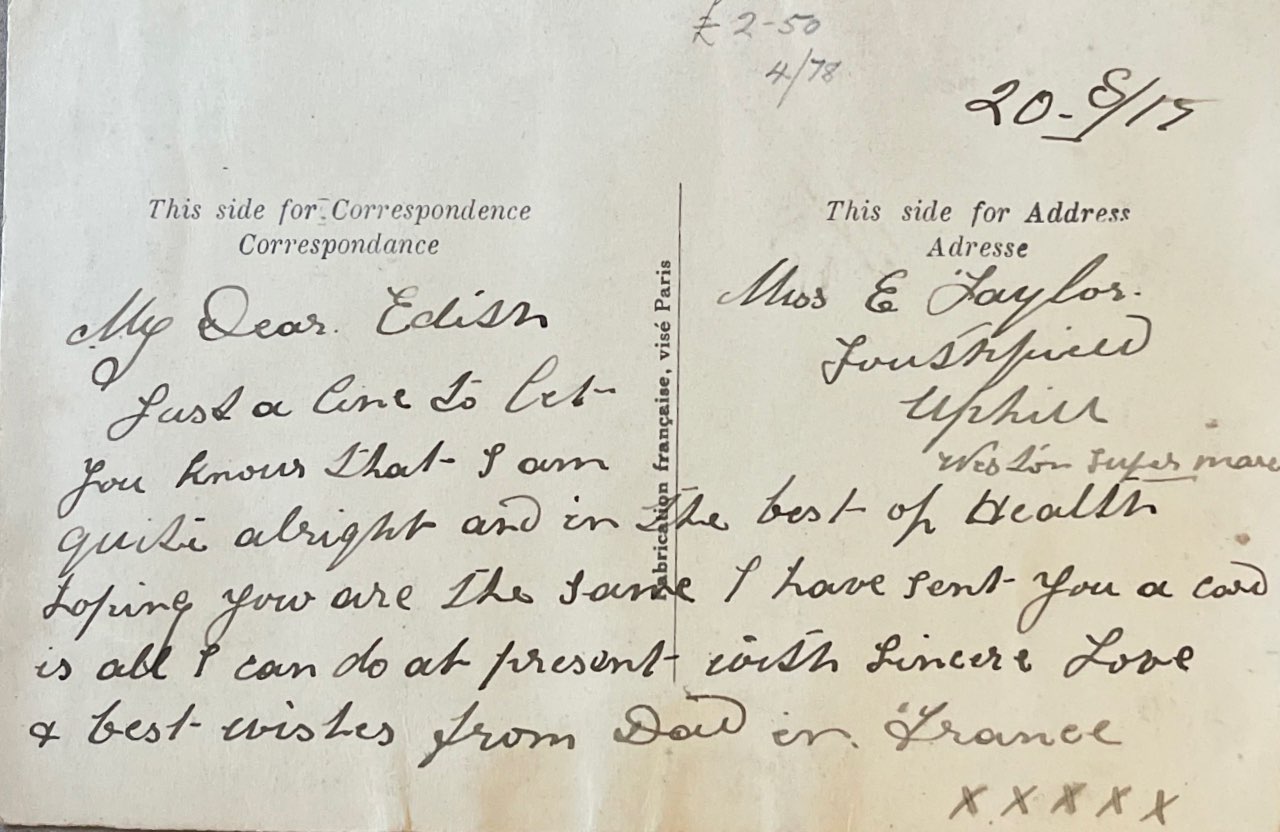 £2-50
4/78
20-8/15
This side for Correspondence
Correspondance
This side for Address
Adresse
Fabrication française, visé Paris
Miss E Taylor.
Uphill
Weston Super mare
My Dear. Edith
Just a line to let
you know that I am
quite alright and in the best of Health
hoping you are the same I have sent you a card
is all I can do at present with Sincere Love
& best wishes from Dad in. France
X X X X X